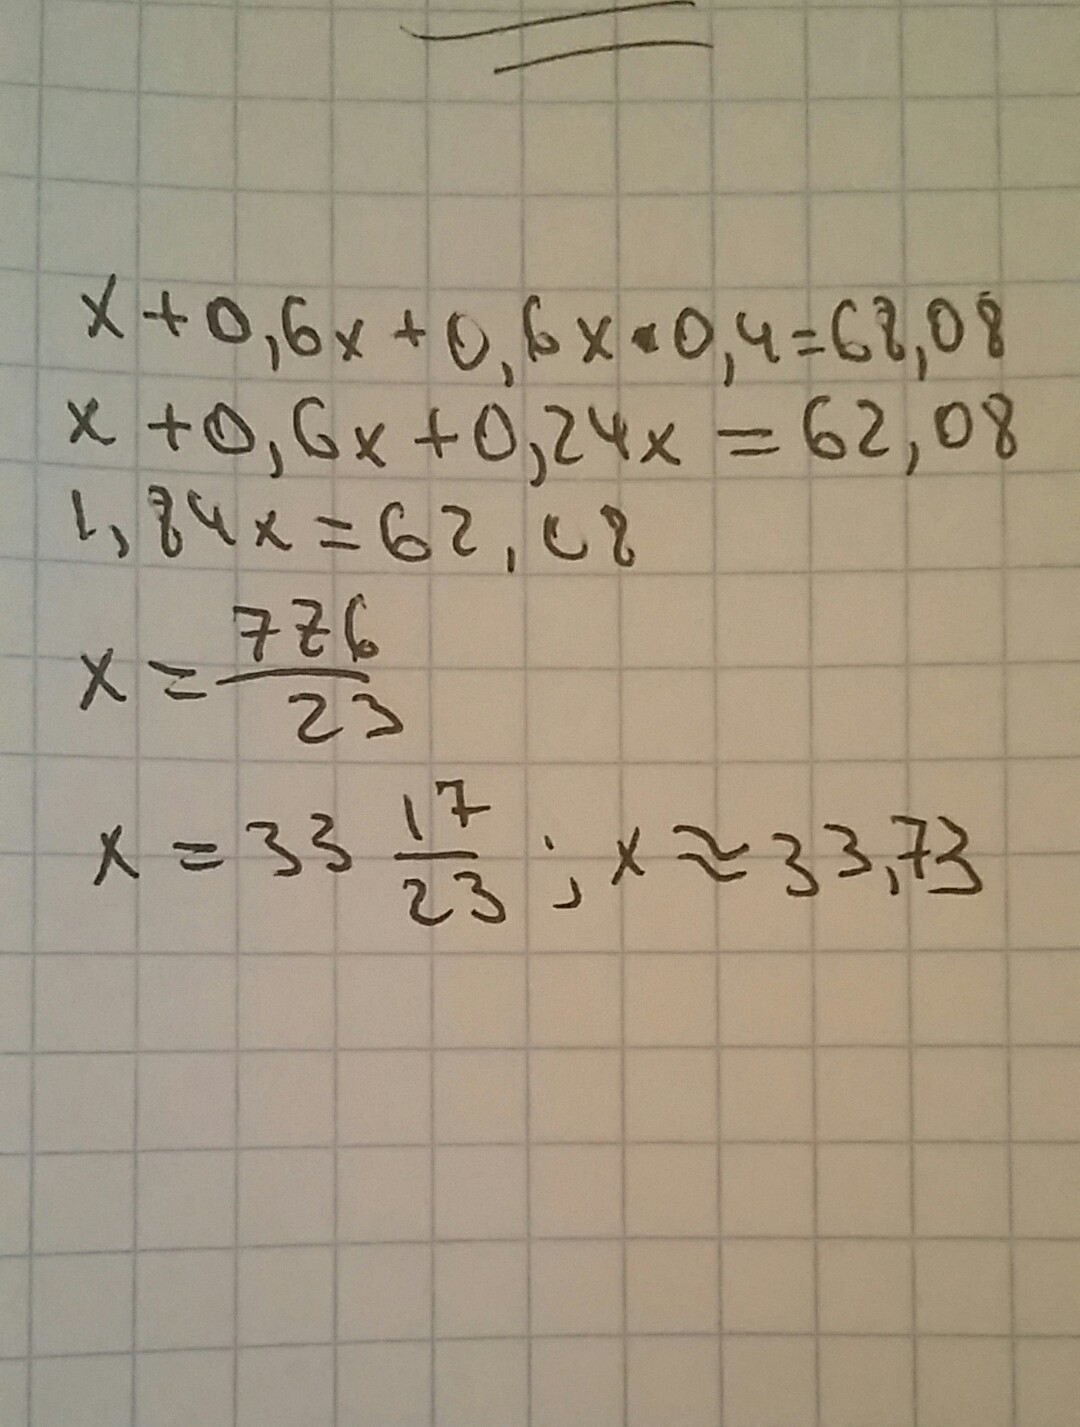 x+0,6x+0,6x·0,4=68,08
x+0,6x+0,24x=62,08
1,84x=62,08
x=776/23
x=33 17/23; x≈33,73